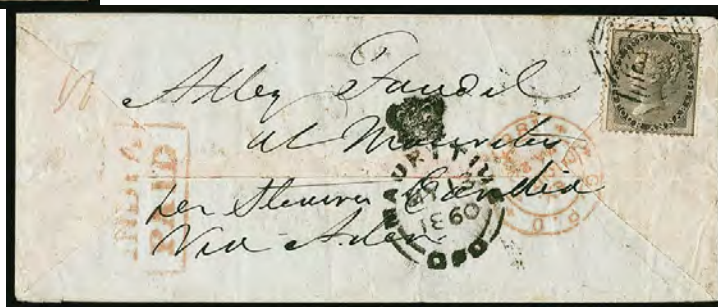 Alley Fandil
at Mauritus
per Steamer Candia
Via Aden
INDIA
PAID
MAURITIUS
GPO